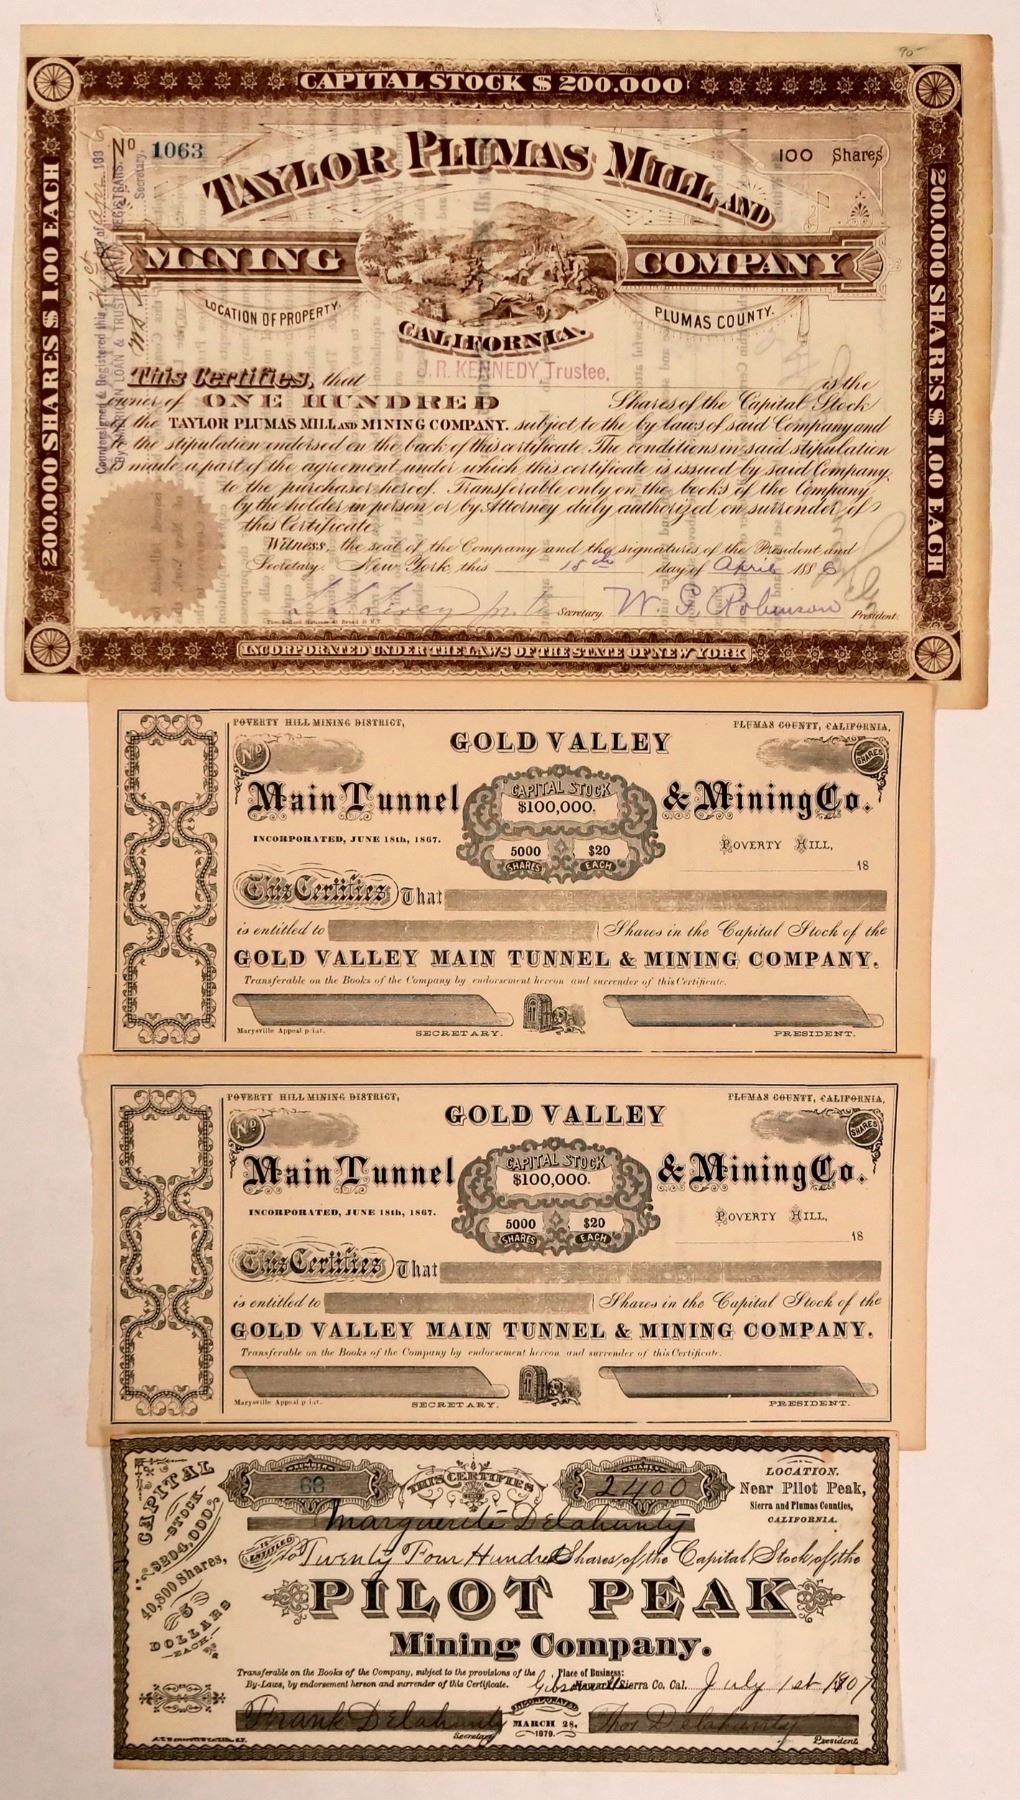 90-
CAPITAL STOCK $ 200.000
200.000 SHARES $ 1.00 EACH
200.000 SHARES $ 1.00 EACH
No 1063
100 Shares
TAYLOR PLUMAS MILL AND
MINING COMPANY
LOCATION OF PROPERTY.
PLUMAS COUNTY.
CALIFORNIA.
Countersigned & Registered this
LOAN & TRUST
REGISTRARS.
Secretary.
This Certifies, that J. R. KENNEDY Trustee, is the
owner of ONE HUNDRED Shares of the Capital Stock
of the TAYLOR PLUMAS MILL AND MINING COMPANY. subject to the by-laws of said Company and
to the stipulation endorsed on the back of this certificate. The conditions in said stipulation
is made a part of the agreement under which this certificate is issued by said Company,
to the purchaser hereof. Transferable only on the books of the Company
by the holder in person or by Attorney duly authorized on surrender of
this Certificate.
Witness, the seal of the Company and the signatures of the President and
Secretary. New York, this 18th day of April 1886
Secretary W. G. Robinson President.
INCORPORATED UNDER THE LAWS OF THE STATE OF NEW YORK
POVERTY HILL MINING DISTRICT,
PLUMAS COUNTY, CALIFORNIA,
No
GOLD VALLEY
SHARES
Main Tunnel & Mining Co.
CAPITAL STOCK
$100,000.
INCORPORATED, JUNE 18th, 1867.
5000 SHARES
$20 EACH
POVERTY HILL,
18
This Certifies That
is entitled to Shares in the Capital Stock of the
GOLD VALLEY MAIN TUNNEL & MINING COMPANY.
Transferable on the Books of the Company by endorsement hereon and surrender of this Certificate.
Marysville Appeal print.
SECRETARY.
PRESIDENT.
POVERTY HILL MINING DISTRICT,
PLUMAS COUNTY, CALIFORNIA,
No
GOLD VALLEY
SHARES
Main Tunnel & Mining Co.
CAPITAL STOCK
$100,000.
INCORPORATED, JUNE 18th, 1867.
5000 SHARES
$20 EACH
POVERTY HILL,
18
This Certifies That
is entitled to Shares in the Capital Stock of the
GOLD VALLEY MAIN TUNNEL & MINING COMPANY.
Transferable on the Books of the Company by endorsement hereon and surrender of this Certificate.
Marysville Appeal print.
SECRETARY.
PRESIDENT.
CAPITAL
STOCK
$204,000
40,800 Shares,
5
DOLLARS
EACH
68
THIS CERTIFIES
2400
LOCATION.
Near Pilot Peak,
Sierra and Plumas Counties,
CALIFORNIA.
Marguerite Delahunty
IS ENTITLED
To Twenty Four Hundred Shares, of the Capital Stock, of the
PILOT PEAK
Mining Company.
Transferable on the Books of the Company, subject to the provisions of the
By-Laws, by endorsement hereon and surrender of this Certificate.
Place of Business:
Gibsonville Sierra Co. Cal. July 1st 1907
Frank Delahunty
Secretary
INCORPORATED
MARCH 28,
1879.
Thos Delahunty
President